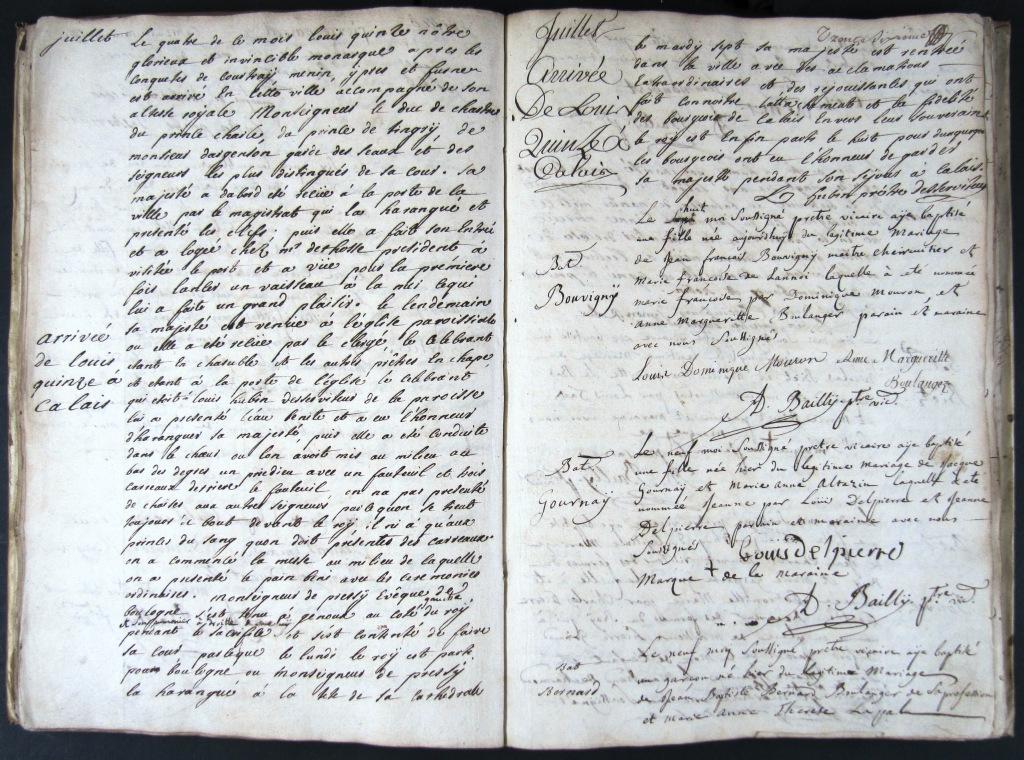 juillet
Le quatre de ce mois Louis quinze nôtre
glorieux et invincible monarque apres les
conquetes de courtray menin, ypres et furnes
est arrivé en cette ville accompagné de son
altesse royale Monseigneur le duc de chartre
du prince charle du prince de tingry de
monsieur dargenson garde des seaux et des
seigneurs les plus distingués de sa cour. sa
majesté a dabord eté recüe à la porte de la
ville par le magistrat qui las harangué et
presenté les clefs. puis elle a fait son entrée
et a logée chez mr president à
visitée le port et a vüe pour la première
fois lancer un vaisseau à la mer ce qui
lui a fait un grand plaisir. le lendemain
sa majesté est venue à l'église paroissiale
ou elle a eté recüe par le clergé, le celebrant
etant en chasuble et les autres prêtres en chape
et etant à la porte de l'église le celebrant
qui etoit louis hubin desserviteur de la paroisse
lui a presenté l'eau benite et a eu l'honneur
d'haranguer sa majesté, puis elle a eté conduite
dans le chœur ou lon avoit mis au milieu au
bas des degres un priedieu avec un fauteuil et trois
carreaux derriere le fauteuil on na pas presenté
de chaises aux autres seigneurs parceque on se tient
toujours de bout devant le roy il ni a quaux
princes du sang quon doit presenter des carreaux
on a commencé la messe au milieu de laquelle
on a presenté le pain beni avec les ceremonies
ordinaires. monseigneur de pressy Evêque de
boulogne s'est tenu à genoux au coté gauche du roy
pendant le sacrifice et s'est contenté de faire
sa cour parceque le lundi le roy est parti
pour boulogne ou monseigneur de pressy
la harangué à la tête de sa cathedrale
arrivée
de louis
quinze à
calais
Juillet
Arrivée
De Louis
Quinze à
Calais
le mardy sept sa majesté est rentrée
dans la ville avec des acclamations
Extraordinaires et des rejouissances qui ont
fait connoitre l'attachement et la fidelité
des bourgeois de calais Envers leur souverain
le roy est enfin parti le huit pour dunquerque
les bourgeois ont eu l'honneur de garder
sa majesté pendant son sejour à calais.
L hubin prêtre desserviteur
Bat.
Bouvigny
Le huit moi soussigné pretre vicaire aije baptisé
une fille née aujourdhuy du legitime Mariage
de Jean françois Bouvigny maitre chercuitier et
Marie françoise de Lannoi laquelle à eté nommée
marie françoise, par Dominique Mouron, et
anne Margueritte Boulanger parain et maraine
avec nous soussignés
Louis Dominique Mouron Anne Margueritte
Boulanger
A Bailly ptre vic.
Bat
Gournay
Le neuf moi soussigné pretre vicaire aije baptisé
une fille née hier du legitime mariage de Jacque
Gournay et Marie Anne Altazin laquelle à eté
nommée Jeanne par Louis Delpierre et Jeanne
Delpierre parain et maraine avec nous
soussignés
Louis Delpierre
Marque + de la maraine
A. Bailly ptre vic.
Bat
Bernard
Le neuf moy soussigné prêtre vicaire aije baptisé
un garçon né hier du legitime Mariage
de Jeanne Baptiste Bernard Boulanger de sa profession
et marie anne Therese